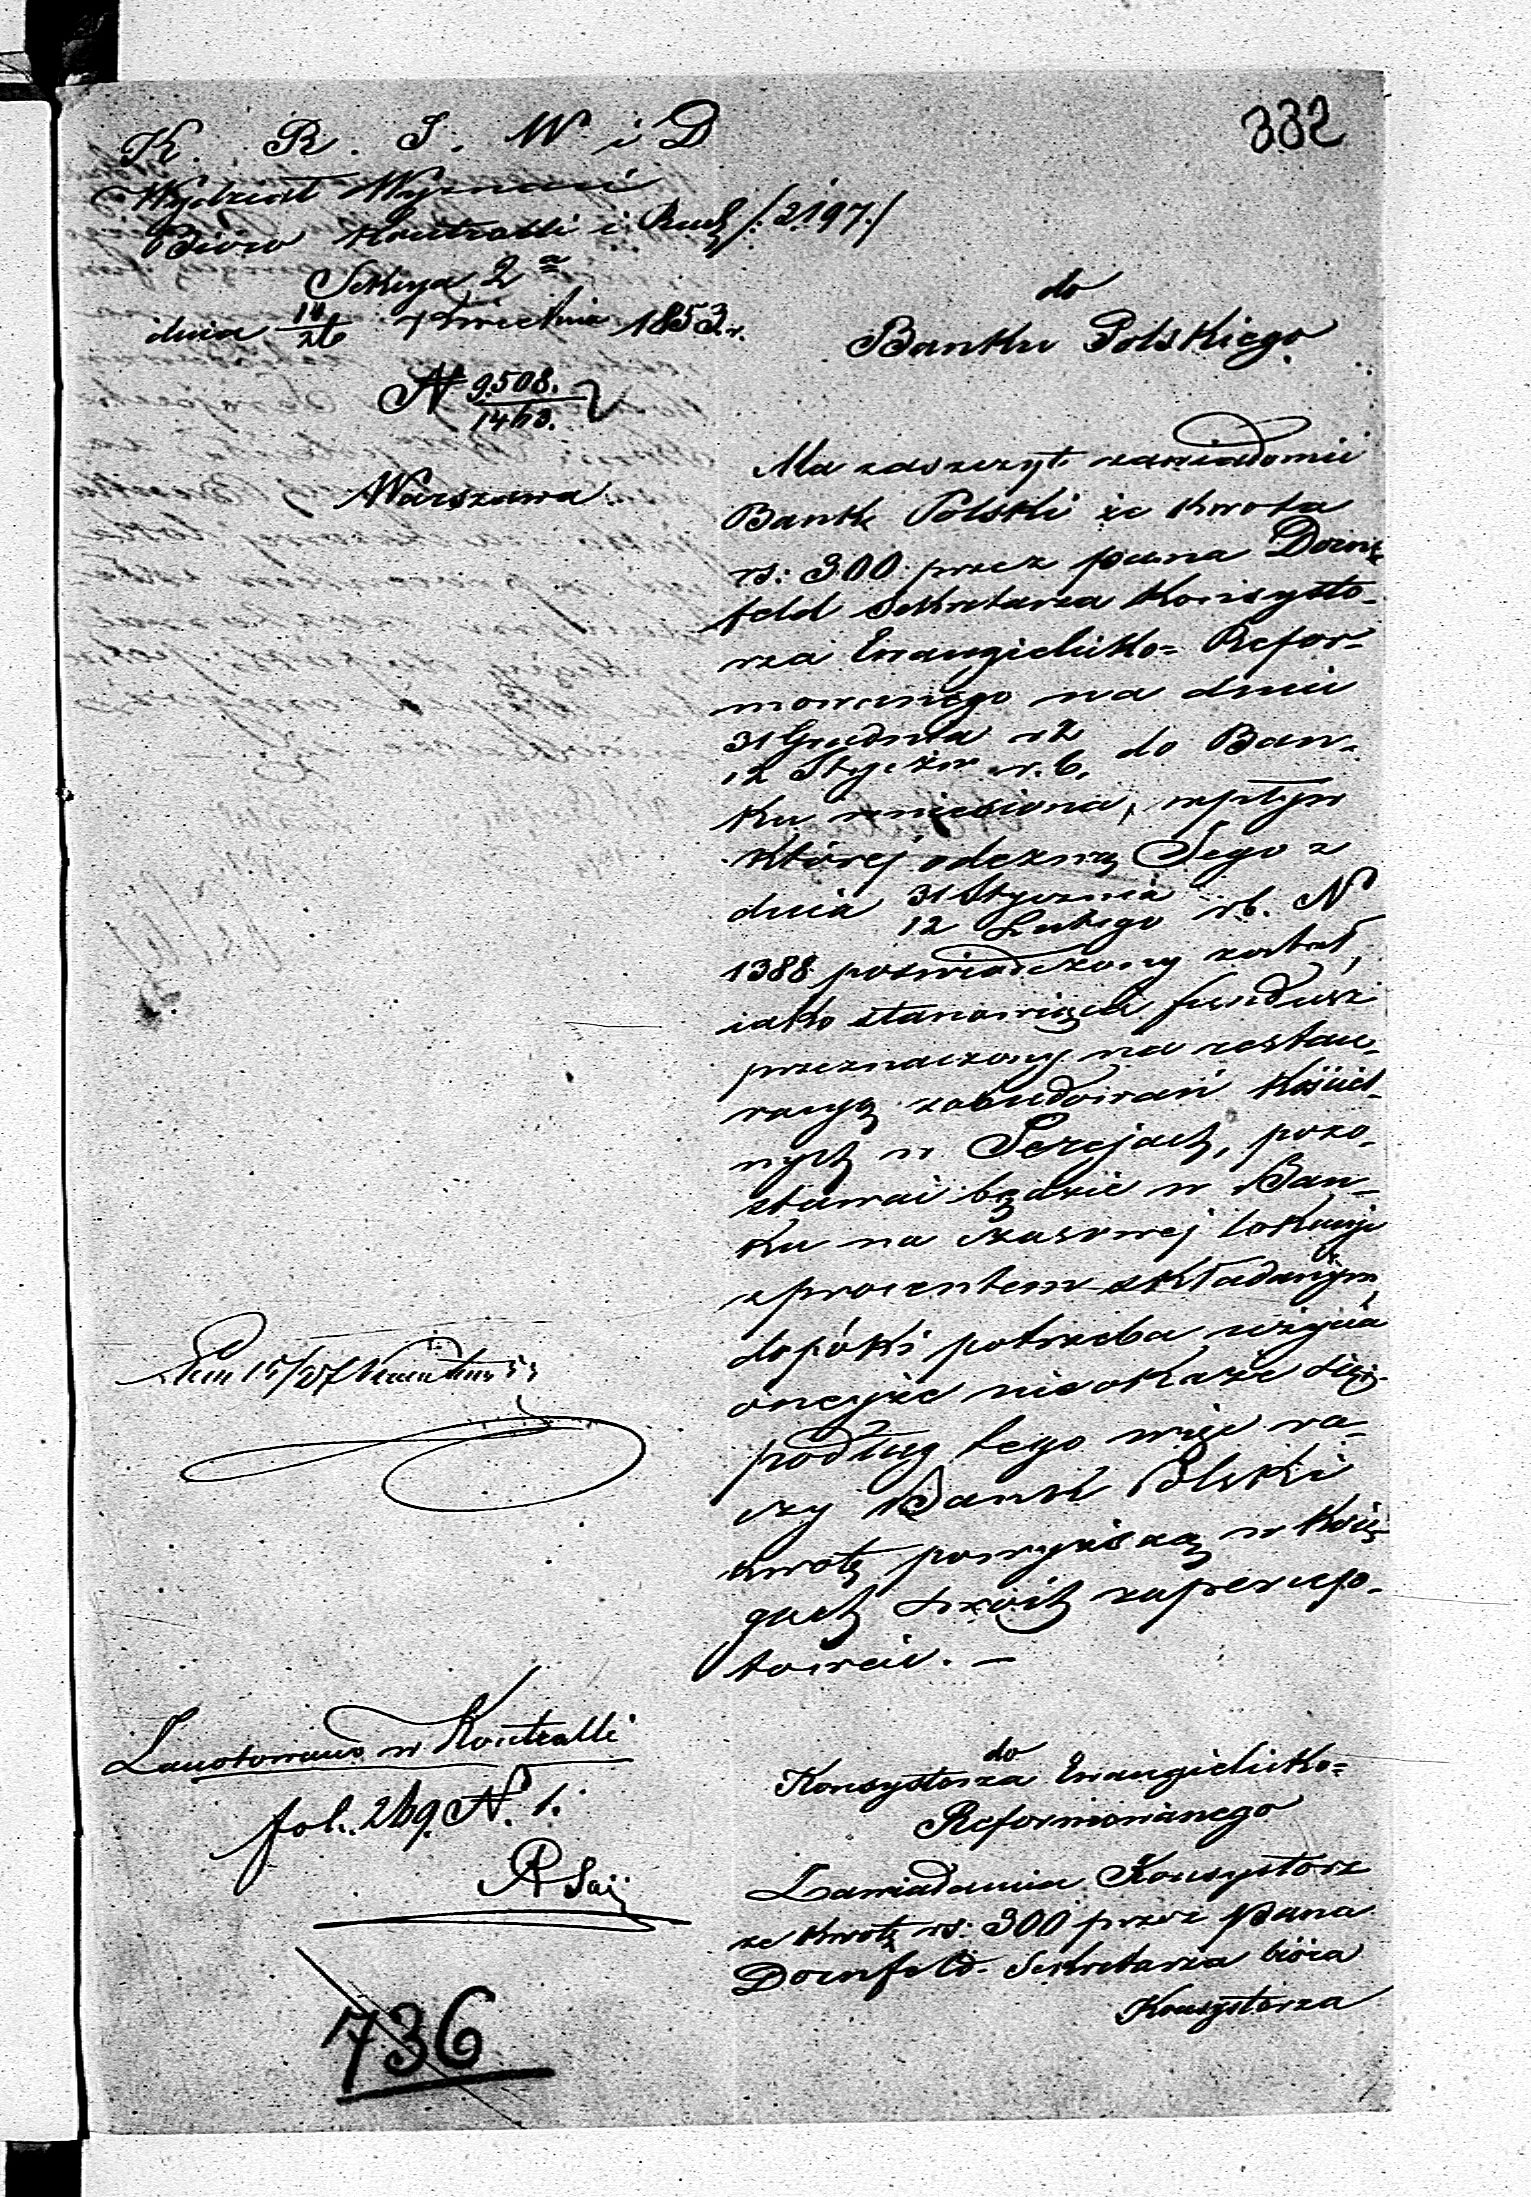 332
K. R. S. W i D
Wydział Wyznań
Biuro Kontrolli i Rach /:2197:/
Sekcya 2a
dnia 14/26 Kwietnia 1853 r.
N 9508./1463.
Warszawa
do
Banku Polskiego
Ma zaszczyt zawiadomić
Bank Polski że kwota
rs: 300 przez pana Dorn=
feld Sekretarza Konsysto-
rza Ewangielicko= Refor-
mowanego na dniu
31 Grudnia r z
12 Stycznia r. b. do Ban-
ku wniesiona, wpływ
której odezwą Jego z
dnia 31 Stycznia
12 Lutego rb. N
1388 poświadczony został,
iako stanowiąca fundusz
przeznaczony na restau-
racyą zabudowań kościel-
nych w Serejach, pozo-
stawać będzie w Ban-
ku na czasowej lokacyi
z procentem składanym,
dopóki potrzeba użycia
oneyże nieokaże się;
podług tego więc ra-
czy Bank Polski
kwotę powyższą w Księ-
gach swóich zaprenoto-
tować. —
Zanotowano w Kontrolli
fol. 269. N. 1.
736
do
Konsystorza Ewangielicko=
Reformowanego
Zawiadamia Konsystorz
że kwotę rs: 300 przez Pana
Dornfeld Sekretarza bióra
Konsystorza